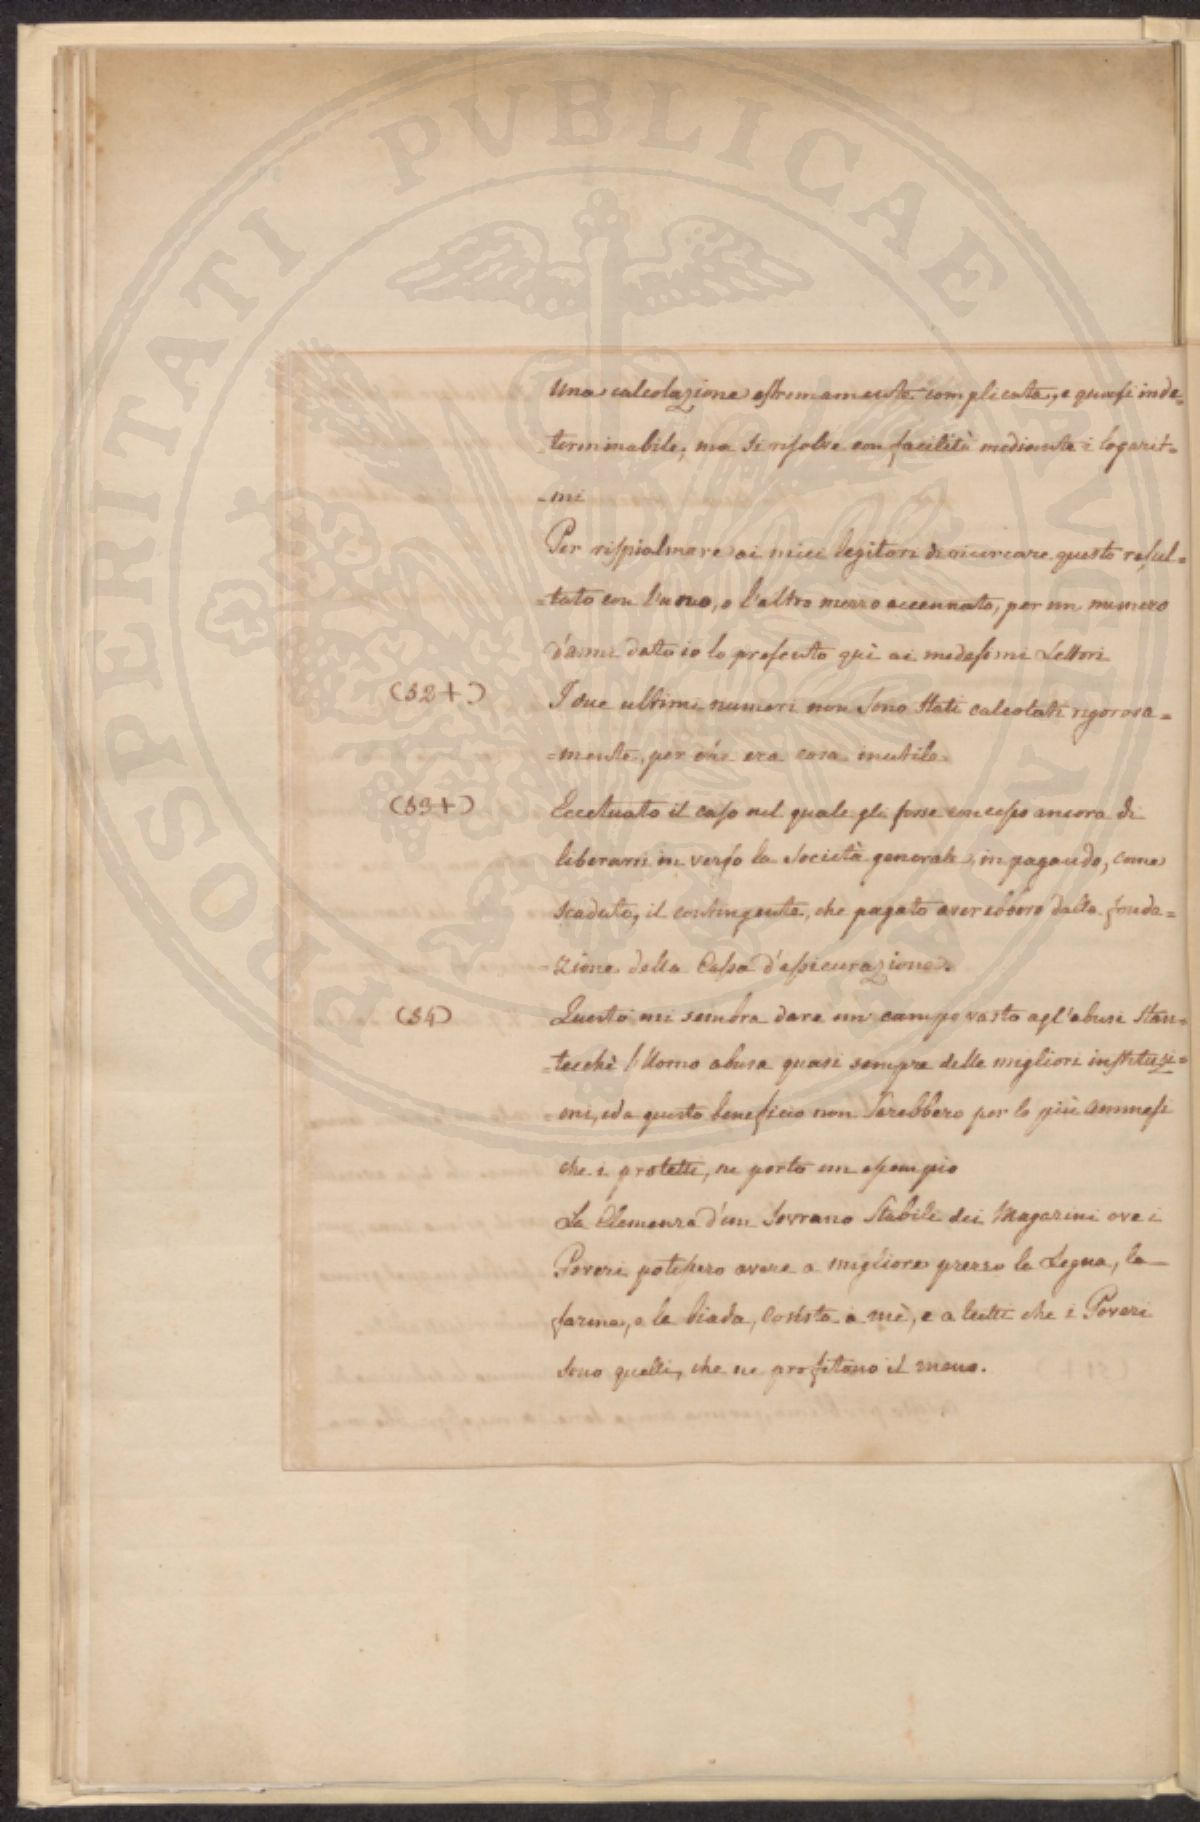 PROSPERITATI PUBLICAE AUGENDAE
una calcolazione estremamente complicata, e quasi inde=
=terminabile, ma si risolve con facilità mediante i logarit=
=mi
Per rispialmare ai miei legitori di ricercare questo resul=
=tato con l'uno, o l'altro mezzo accennato, per un numero
d'anni dato io lo presento quì ai medesimi Lettori
(52+) I due ultimi numeri non sono stati calcolati rigorosa=
=mente, per che era cosa inutile.
(53+) Eccetuato il caso nel quale gli fosse concesso ancora di
liberarsi in verso la Società generale, in pagando, come
scaduto, il contingente, che pagato averebbero dalla fonda=
=zione della Cassa d'assicurazione.
(54) Questo mi sembra dare un campo vasto agl'abusi stan=
=tecchè l'Uomo abusa quasi sempre delle migliori instituzi=
=oni, ed a questo beneficio non sarebbero per lo più ammessi
che i protetti, ne porto un esempio
La Clemenza d'un Sovrano stabilì dei Magazini ove i
Poveri potessero avere a migliore prezzo la Legna, la
farina, e la biada, costa a mè, e a tutti che i Poveri
sono quelli, che ne profitano il meno.